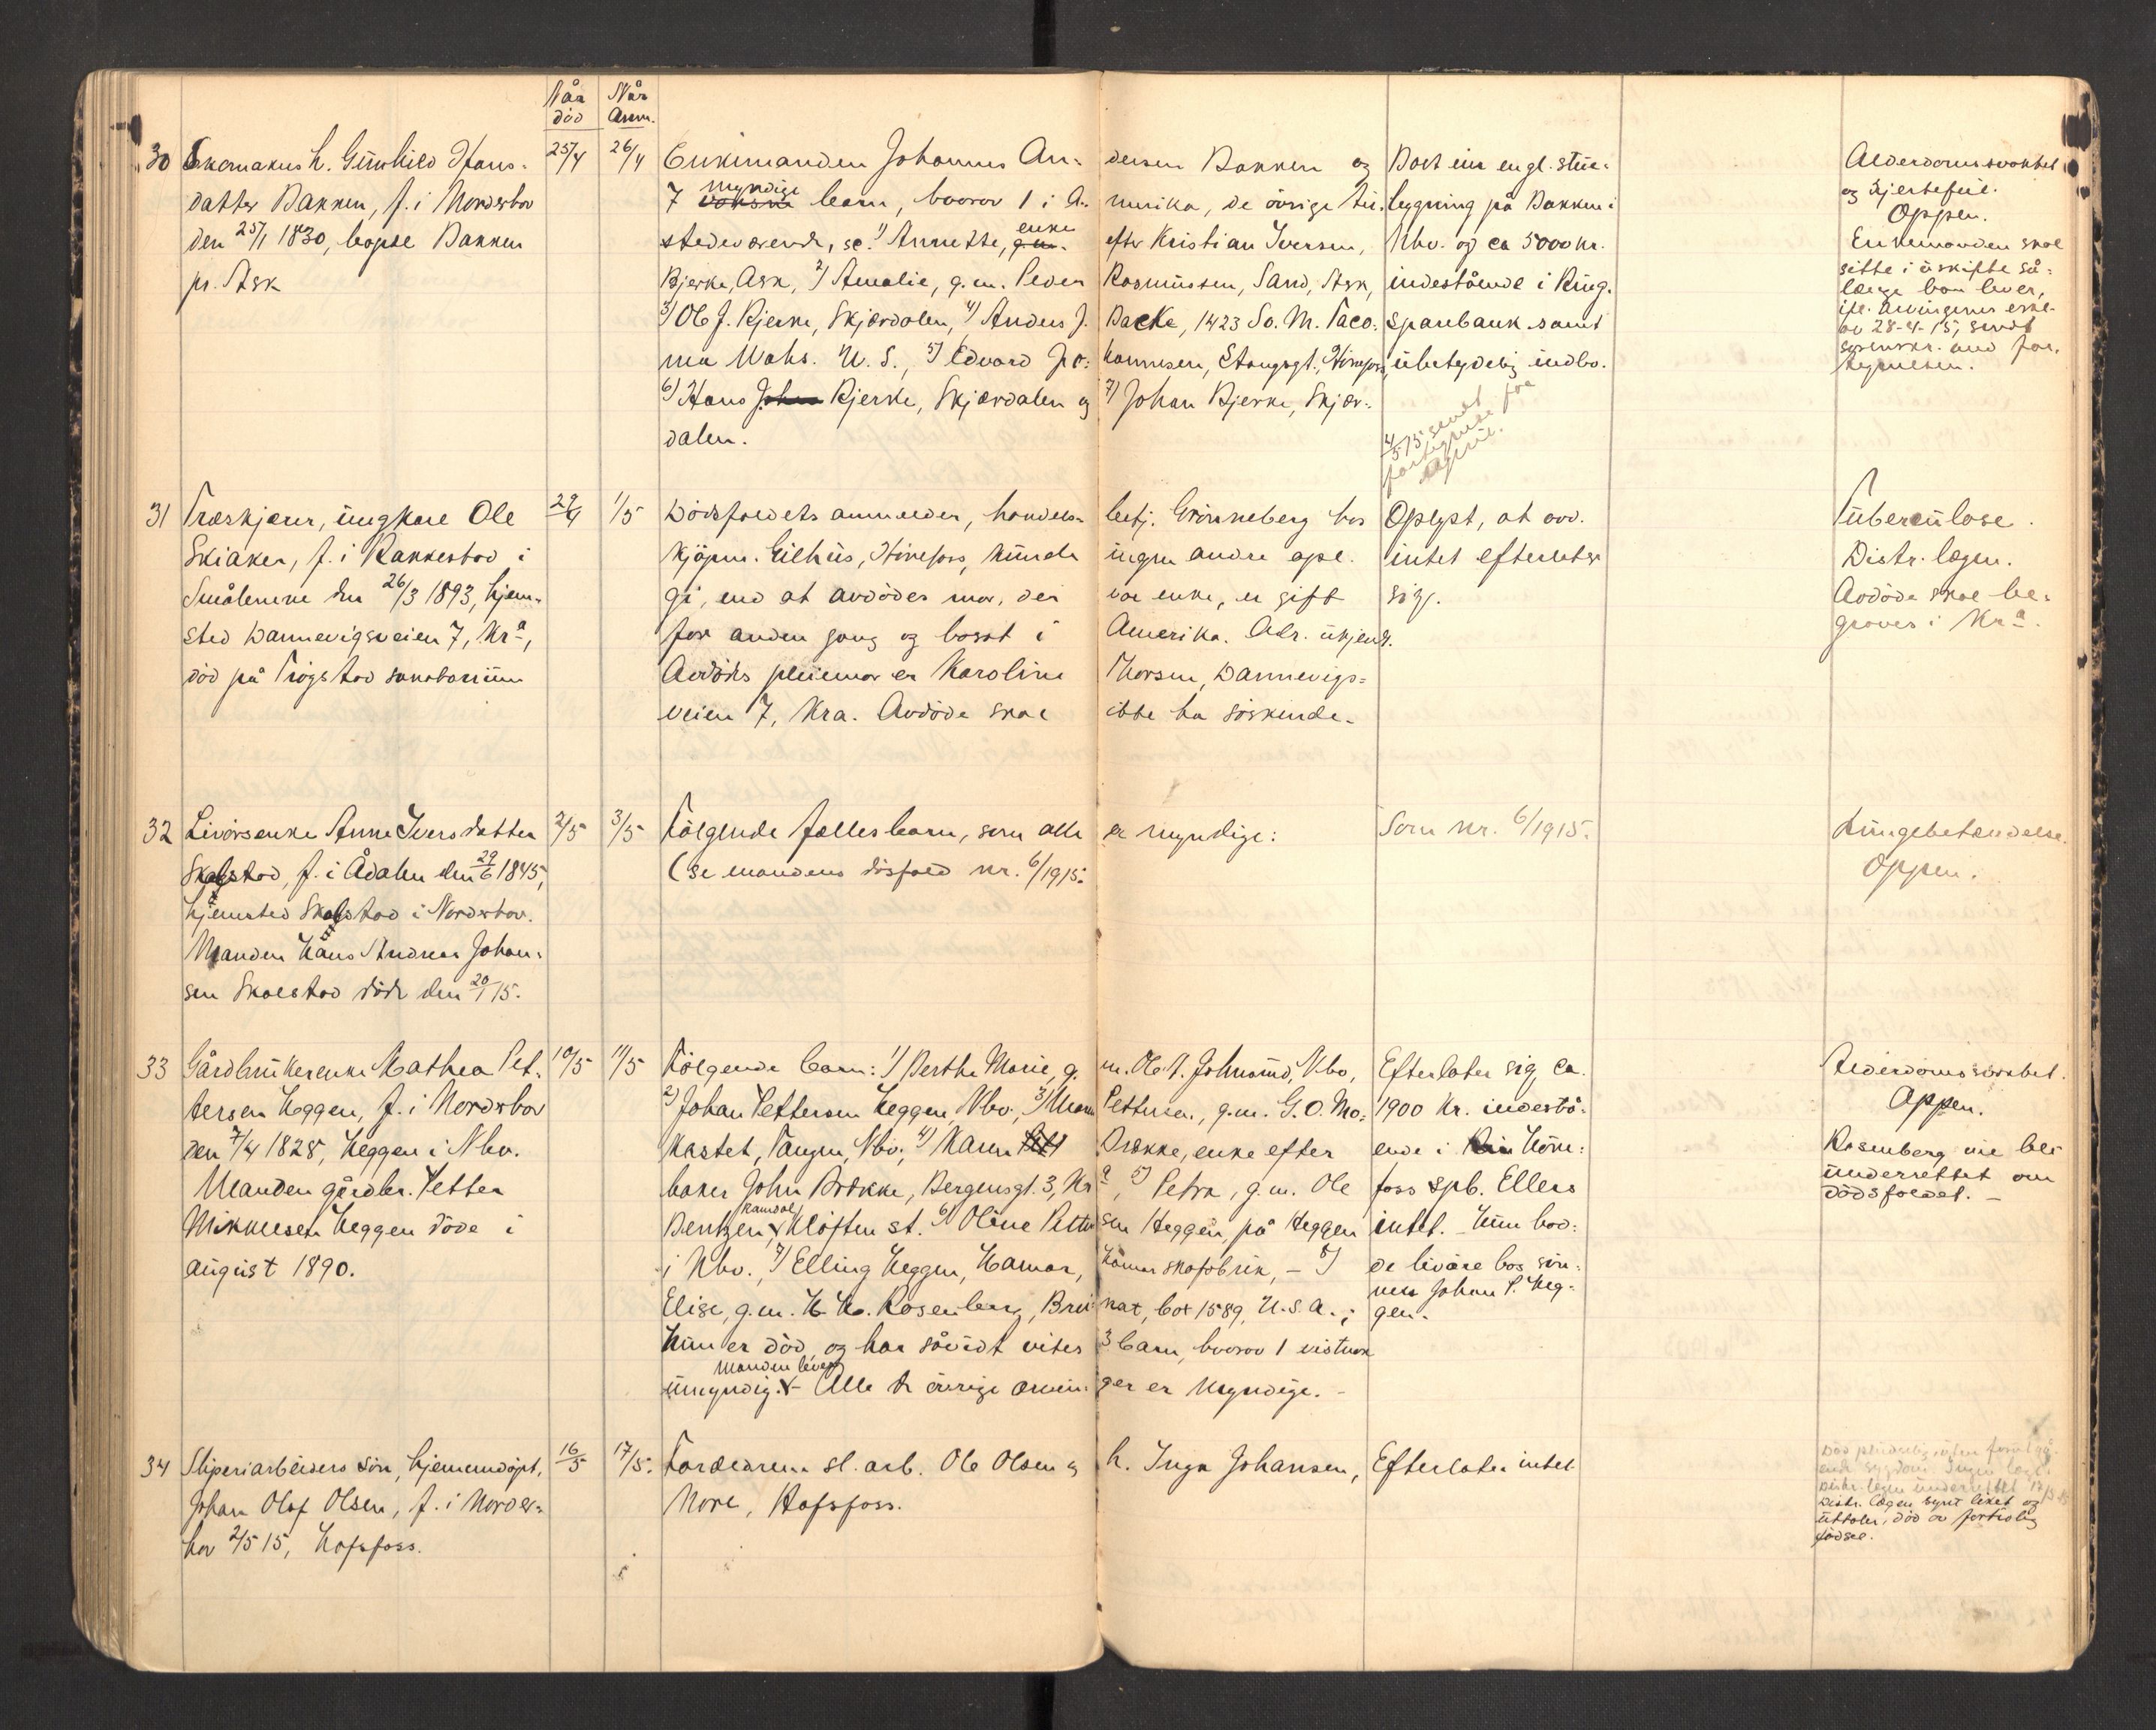 Når
död
Når
Anm.
30 Skomakers h. Gunhild Hans-
datter Bakken, f. i Norderhov
den 25/1 1830, bopæl Bakken
pr. Ask
25/4
26/4
Enkemanden Johannes An-
7 voksne myndige barn, hvorav 1 i A-
stedeværende, se. 1) Annette, g.m. enke
Bjerke, Ask, 2) Amalie, g.m. Peder
3) Ole J. Bjerke, Skjærdalen, 4) Anders J.
ma Wahs. U.S., 5) Edvard Jo-
6) Hans Johan Bjerke, Skjærdalen og
dalen.
dersen Bakken og
merika, de övrige til-
efter Kristian Iversen,
Rasmussen, Sand, Ask,
Backe, 1423 So. M. Taco-
hannesen, Stangsgt., Hönefoss,
7) Johan Bjerke, Skjær-
Boet eier engl. stue-
bygning på Bakken i
Nhv. og ca 5000 kr.
indestående i Ring.
sparebank samt
ubetydelig indbo.
4/5 15 sendt
fortegnelse for
April.
Alderdomssvakhet
og hjertefeil.
Oppen.
Enkemanden skal
sitte i uskifte så-
længe han lever,
ifl. arvingenes erkl.
av 28-4-15, sendt
sorenskr. med for-
tegnelsen.
31 Træskjærer, ungkare Ole
Skiaker, f. i Rakkestad i
Smålenene den 26/3 1893, hjem-
sted Dannevigsveien 7, Kra,
död på Trögstad sanatorium
29/4
1/5
Dödsfaldets anmelder, handels-
kjöpm. Gilhus, Hönefoss, kunde
gi, end at avdödes mor, der
for anden gang og bosat i
Avdödes pleiemor er Karoline
veien 7, Kra. Avdöde skal
betj. Grönneberg hos
ingen andre opl.
var enke, er gift
Amerika. Adr. ukjendt.
Thorsen, Dannevigs-
ikke ha söskende.
Oplyst, at avd.
intet efterlater
sig.
Tuberculose.
Distr. lægen.
Avdöde skal be-
graves i Kra.
32 Livörsenke Anne Iversdatter
Skalstad, f. i Ådalen den 29/6 1845,
hjemsted Skalstad i Norderhov.
Manden Hans Andreas Johan-
sen Skalstad döde den 20/1 15.
2/5
3/5
Fölgende fællesbarn, som alle
(se mandens dösfald nr. 6/1915.
er myndige:
Som nr. 6/1915.
Lungebetændelse.
Oppen.
33 Gårdbrukerenke Mathea Pet-
tersen Heggen, f. i Norderhov
den 7/4 1828, Heggen i Nhv.
Manden gårdbr. Petter
Mikkelsen Heggen döde i
august 1890.
10/5
11/5
Fölgende barn: 1) Berthe Marie, g.
2) Johan Pettersen Heggen, Nhv., 3) Maren
kastet, Tangen, Nhv., 4) Karen Pett
baker John Brække, Bergensgt. 3, Kr
Bentzen, Randal Klöften st. 6) Oline Petter
i Nhv., 7) Elling Heggen, Hamar,
Elise, g.m. H. Ho. Rosenberg, Brei-
Hun er död, og har såvidt vites
umyndig. manden lever - Alle de övrige arvin-
m. Ole A. Johnsrud, Nhv,
Pettersen, g.m. G.O. Mo-
Brække, enke efter
a, 5) Petra, g.m. Ole
sen Heggen, på Heggen
Hamar skofabrik, - 8)
nat, box 1589, U.S.A.;
3 barn, hvorav 1 vistnok
ger er myndige. -
Efterlater sig ca.
1900 kr. indestå-
ende i Rin Höne-
foss spb. Ellers
intet. - Hun bod-
de livöre hos sön-
nen Johan P. Heg-
gen.
Alderdomssvakhet.
Oppen.
Rosenberg vil bli
underrettet om
dödsfaldet. -
34 Sliperiarbeiders sön, hjemmedöpt,
Johan Olaf Olsen, f. i Norder-
hov 2/5 15, Hofsfoss.
16/5
17/5.
Forældrene sl. arb. Ole Olsen og
More, Hofsfoss.
h. Inga Johansen,
Efterlater intet
Död pludselig, uten forutgå-
ende sygdom. Ingen læge.
Distr. lægen underrettet 17/5 15
Distr. lægen synt liket og
uttaler, död av fortidlig
födsel.